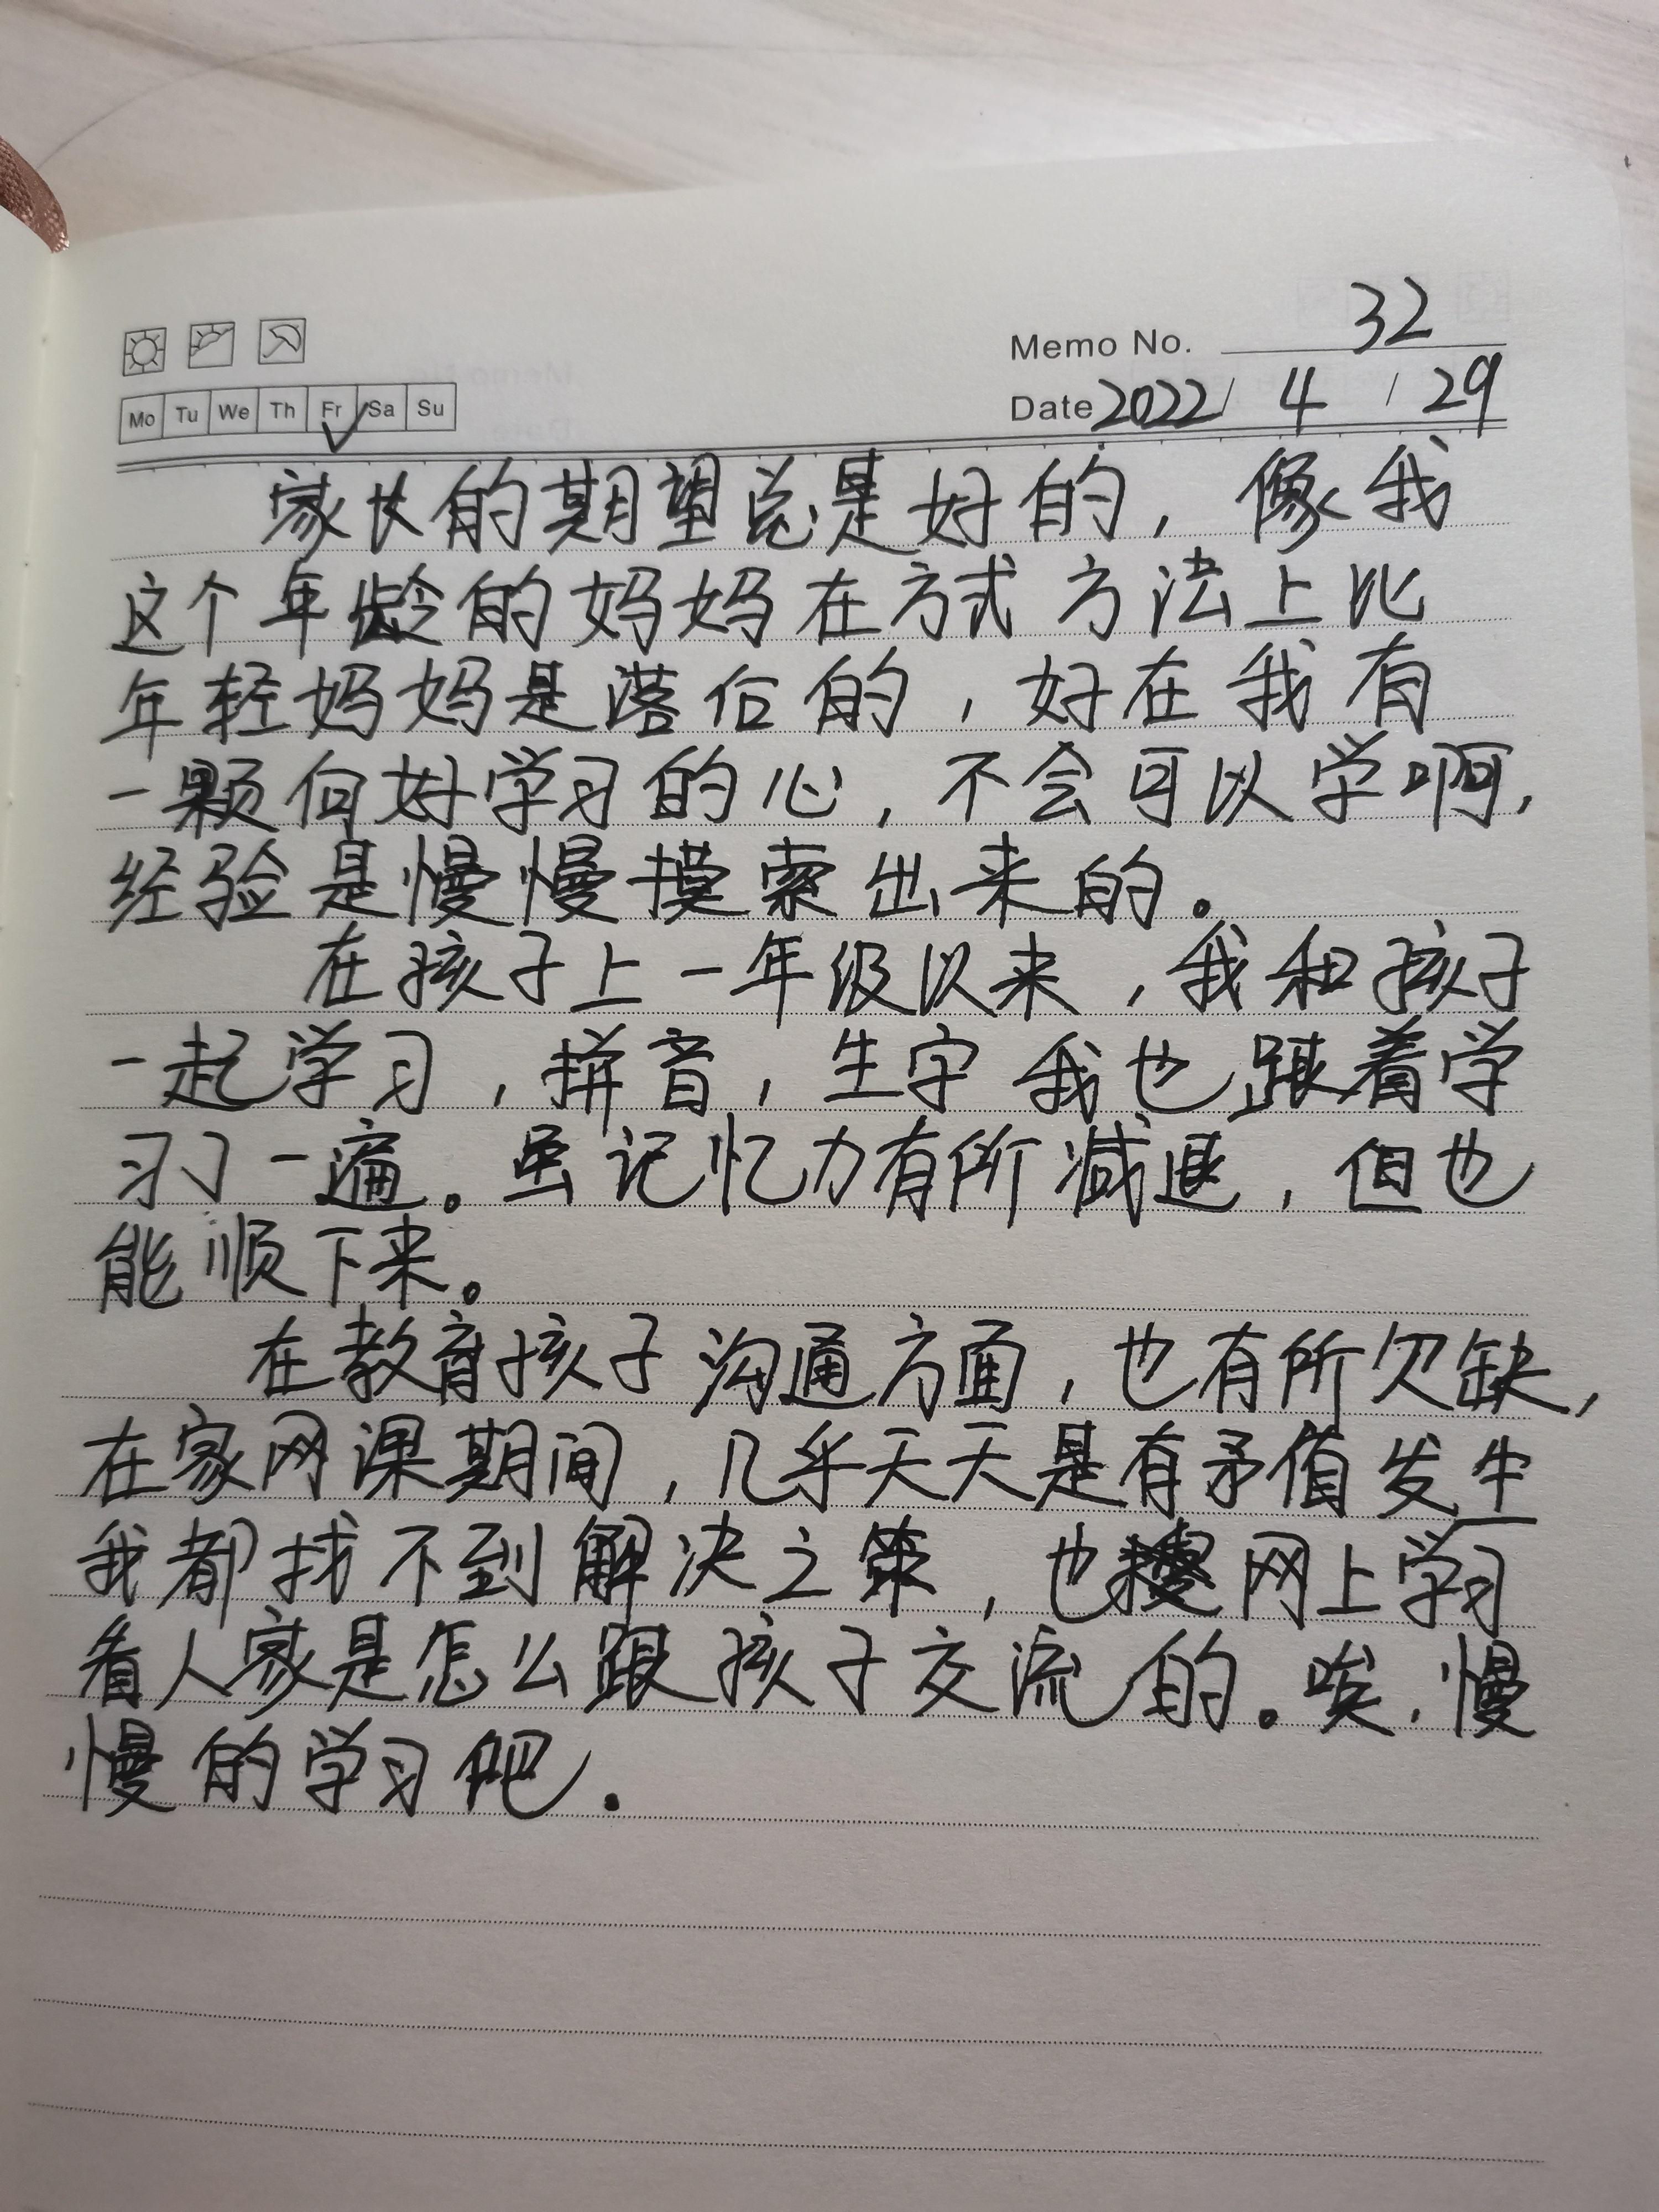 Memo No. 32
Mo Tu We Th Fr Sa Su
Date 2022 / 4 / 29
家长的期望总是好的，像我
这个年龄的妈妈在方式方法上比
年轻妈妈是落后的，好在我有
一颗向好学习的心，不会可以学啊，
经验是慢慢摸索出来的。
在孩子上一年级以来，我和孩子
一起学习，拼音，生字我也跟着学
习了一遍。虽记忆力有所减退，但也
能顺下来。
在教育孩子沟通方面，也有所欠缺，
在家网课期间，几乎天天是有矛值发生
我都找不到解决之策，也搜网上学习
看人家是怎么跟孩子交流的。唉，慢
慢的学习吧.